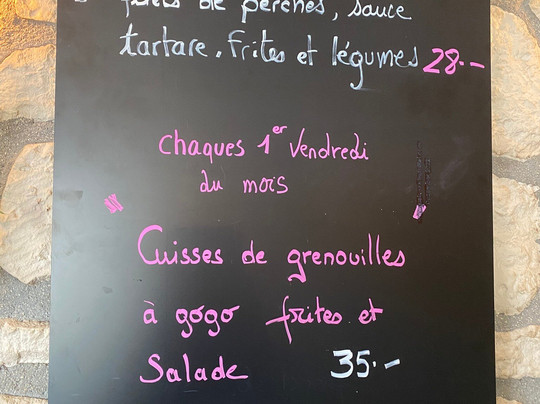 filets de perches, sauce
tartare. Frites et légumes 28.-
Chaques 1er Vendredi
du mois
Cuisses de grenouilles
à gogo frites et
Salade 35.-